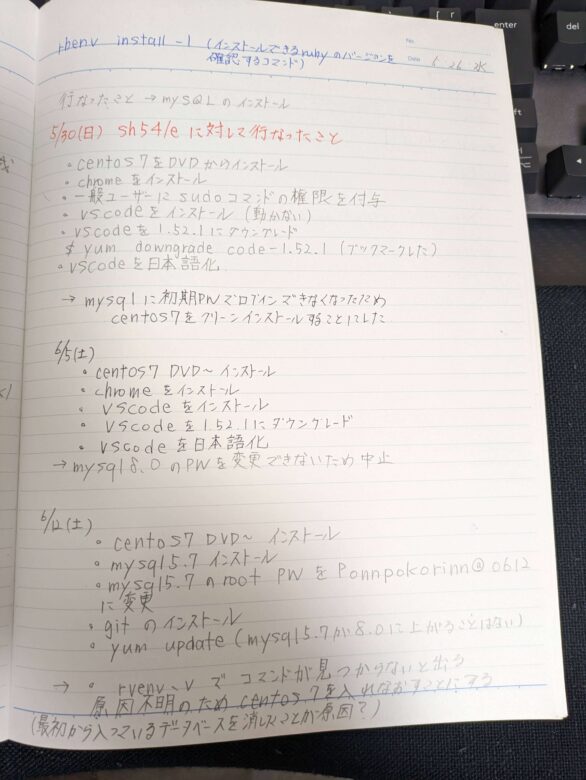 rbenv install -l (インストールできるrubyのバージョンを
確認するコマンド)
No.
Date 6・26・水
行なったこと → mySQLのインストール
5/30(日) sh54/eに対して行なったこと
・centos7をDVDからインストール
・chromeをインストール
・一般ユーザーにsudoコマンドの権限を付与
・vscodeをインストール (動かない)
・vscodeを1.52.1にダウングレード
$ yum downgrade code-1.52.1 (ブックマークした)
・vscodeを日本語化
→ mysqlに初期PWでログインできなくなったため
centos7をクリーンインストールすることにした
6/5(土)
・centos7 DVD~インストール
・chromeをインストール
・vscodeをインストール
・vscodeを1.52.1にダウングレード
・vscodeを日本語化
→ mysql8.0のPWを変更できないため中止
6/12(土)
・centos7 DVD~ インストール
・mysql5.7 インストール
・mysql5.7のroot PWをPonnpokorinn@0612
に変更
・gitのインストール
・yum update (mysql5.7が8.0に上がることはない)
→ ・rvenv -v で コマンドが見つからないと出る
原因不明のためcentos7を入れなおすことにする
(最初から入っているデータベースを消したことが原因?)
enter
del
ctrl